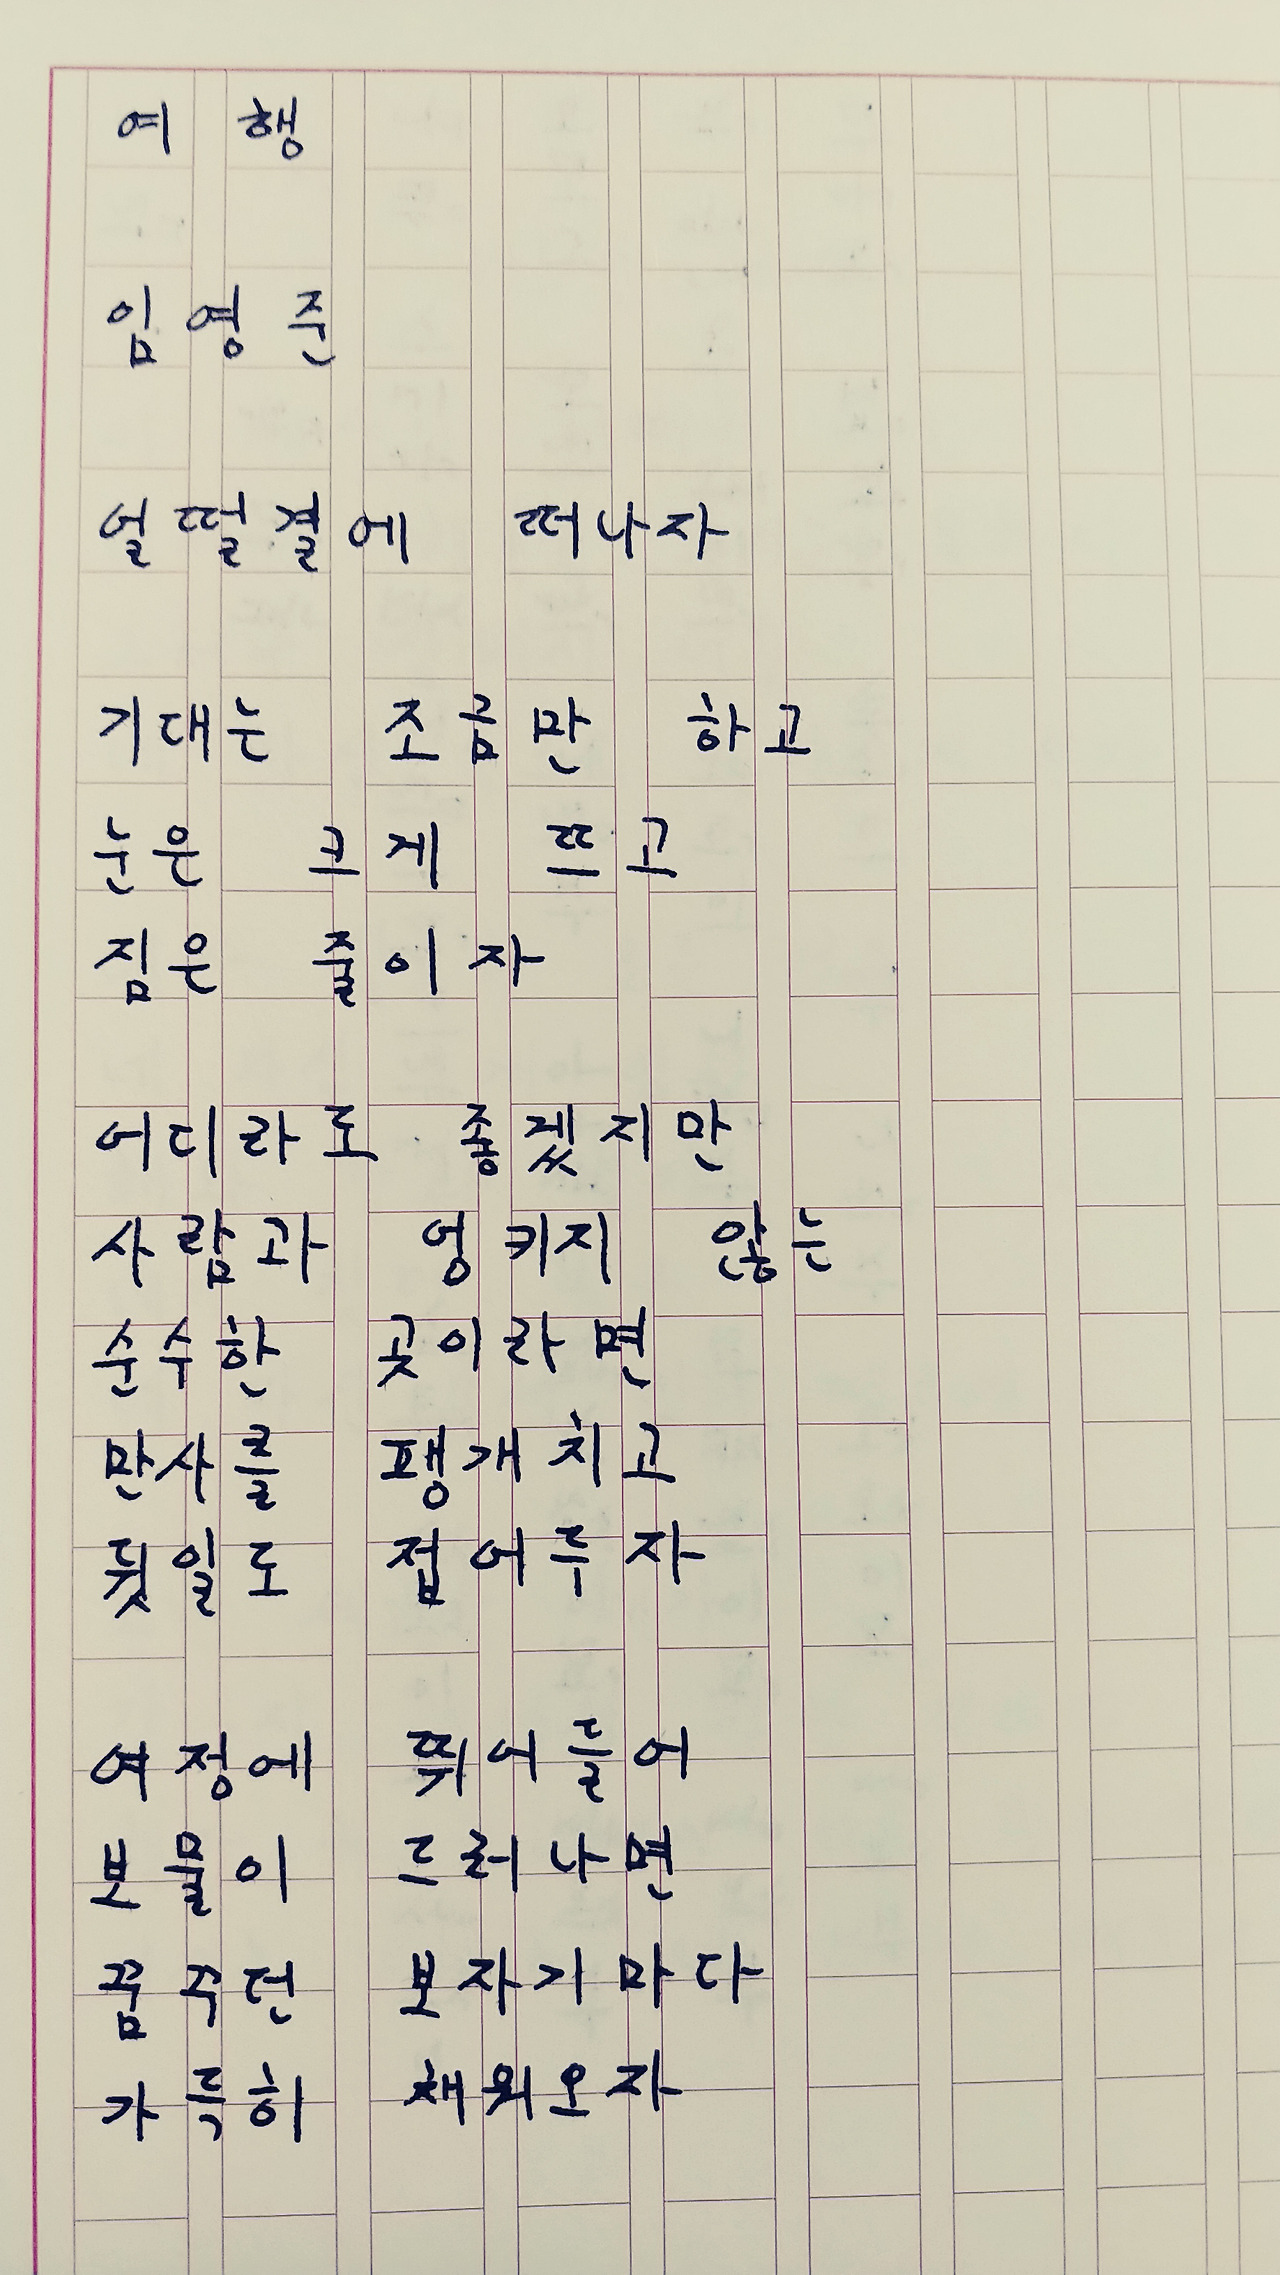 여행
임영준
얼떨결에 떠나자
기대는 조금만 하고
눈은 크게 뜨고
짐은 줄이자
어디라도 좋겠지만
사람과 엉키지 않는
순수한 곳이라면
만사를 팽개치고
뒷일도 접어두자
여정에 뛰어들어
보물이 드러나면
꿈주던 보자기마다
가득히 채워오자